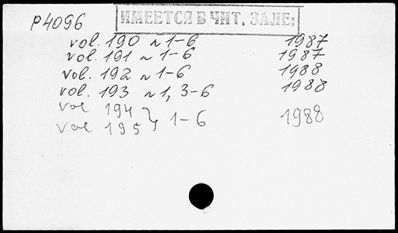 p4096
ИМЕЕТСЯ В ЧИТ. ЗАЛЕ:
vol. 190 N 1-6 1987
vol. 191 N 1-6 1987
vol. 192 N 1-6 1988
vol. 193 N 1, 3-6 1988
vol 194 } 1-6 1988
vol 195